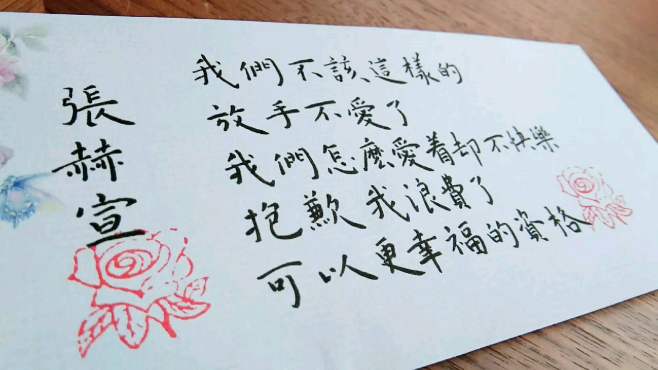 張赫宣
我們不該這樣的
放手不愛了
我們怎麼愛着却不快樂
抱歉我浪費了
可以更幸福的資格